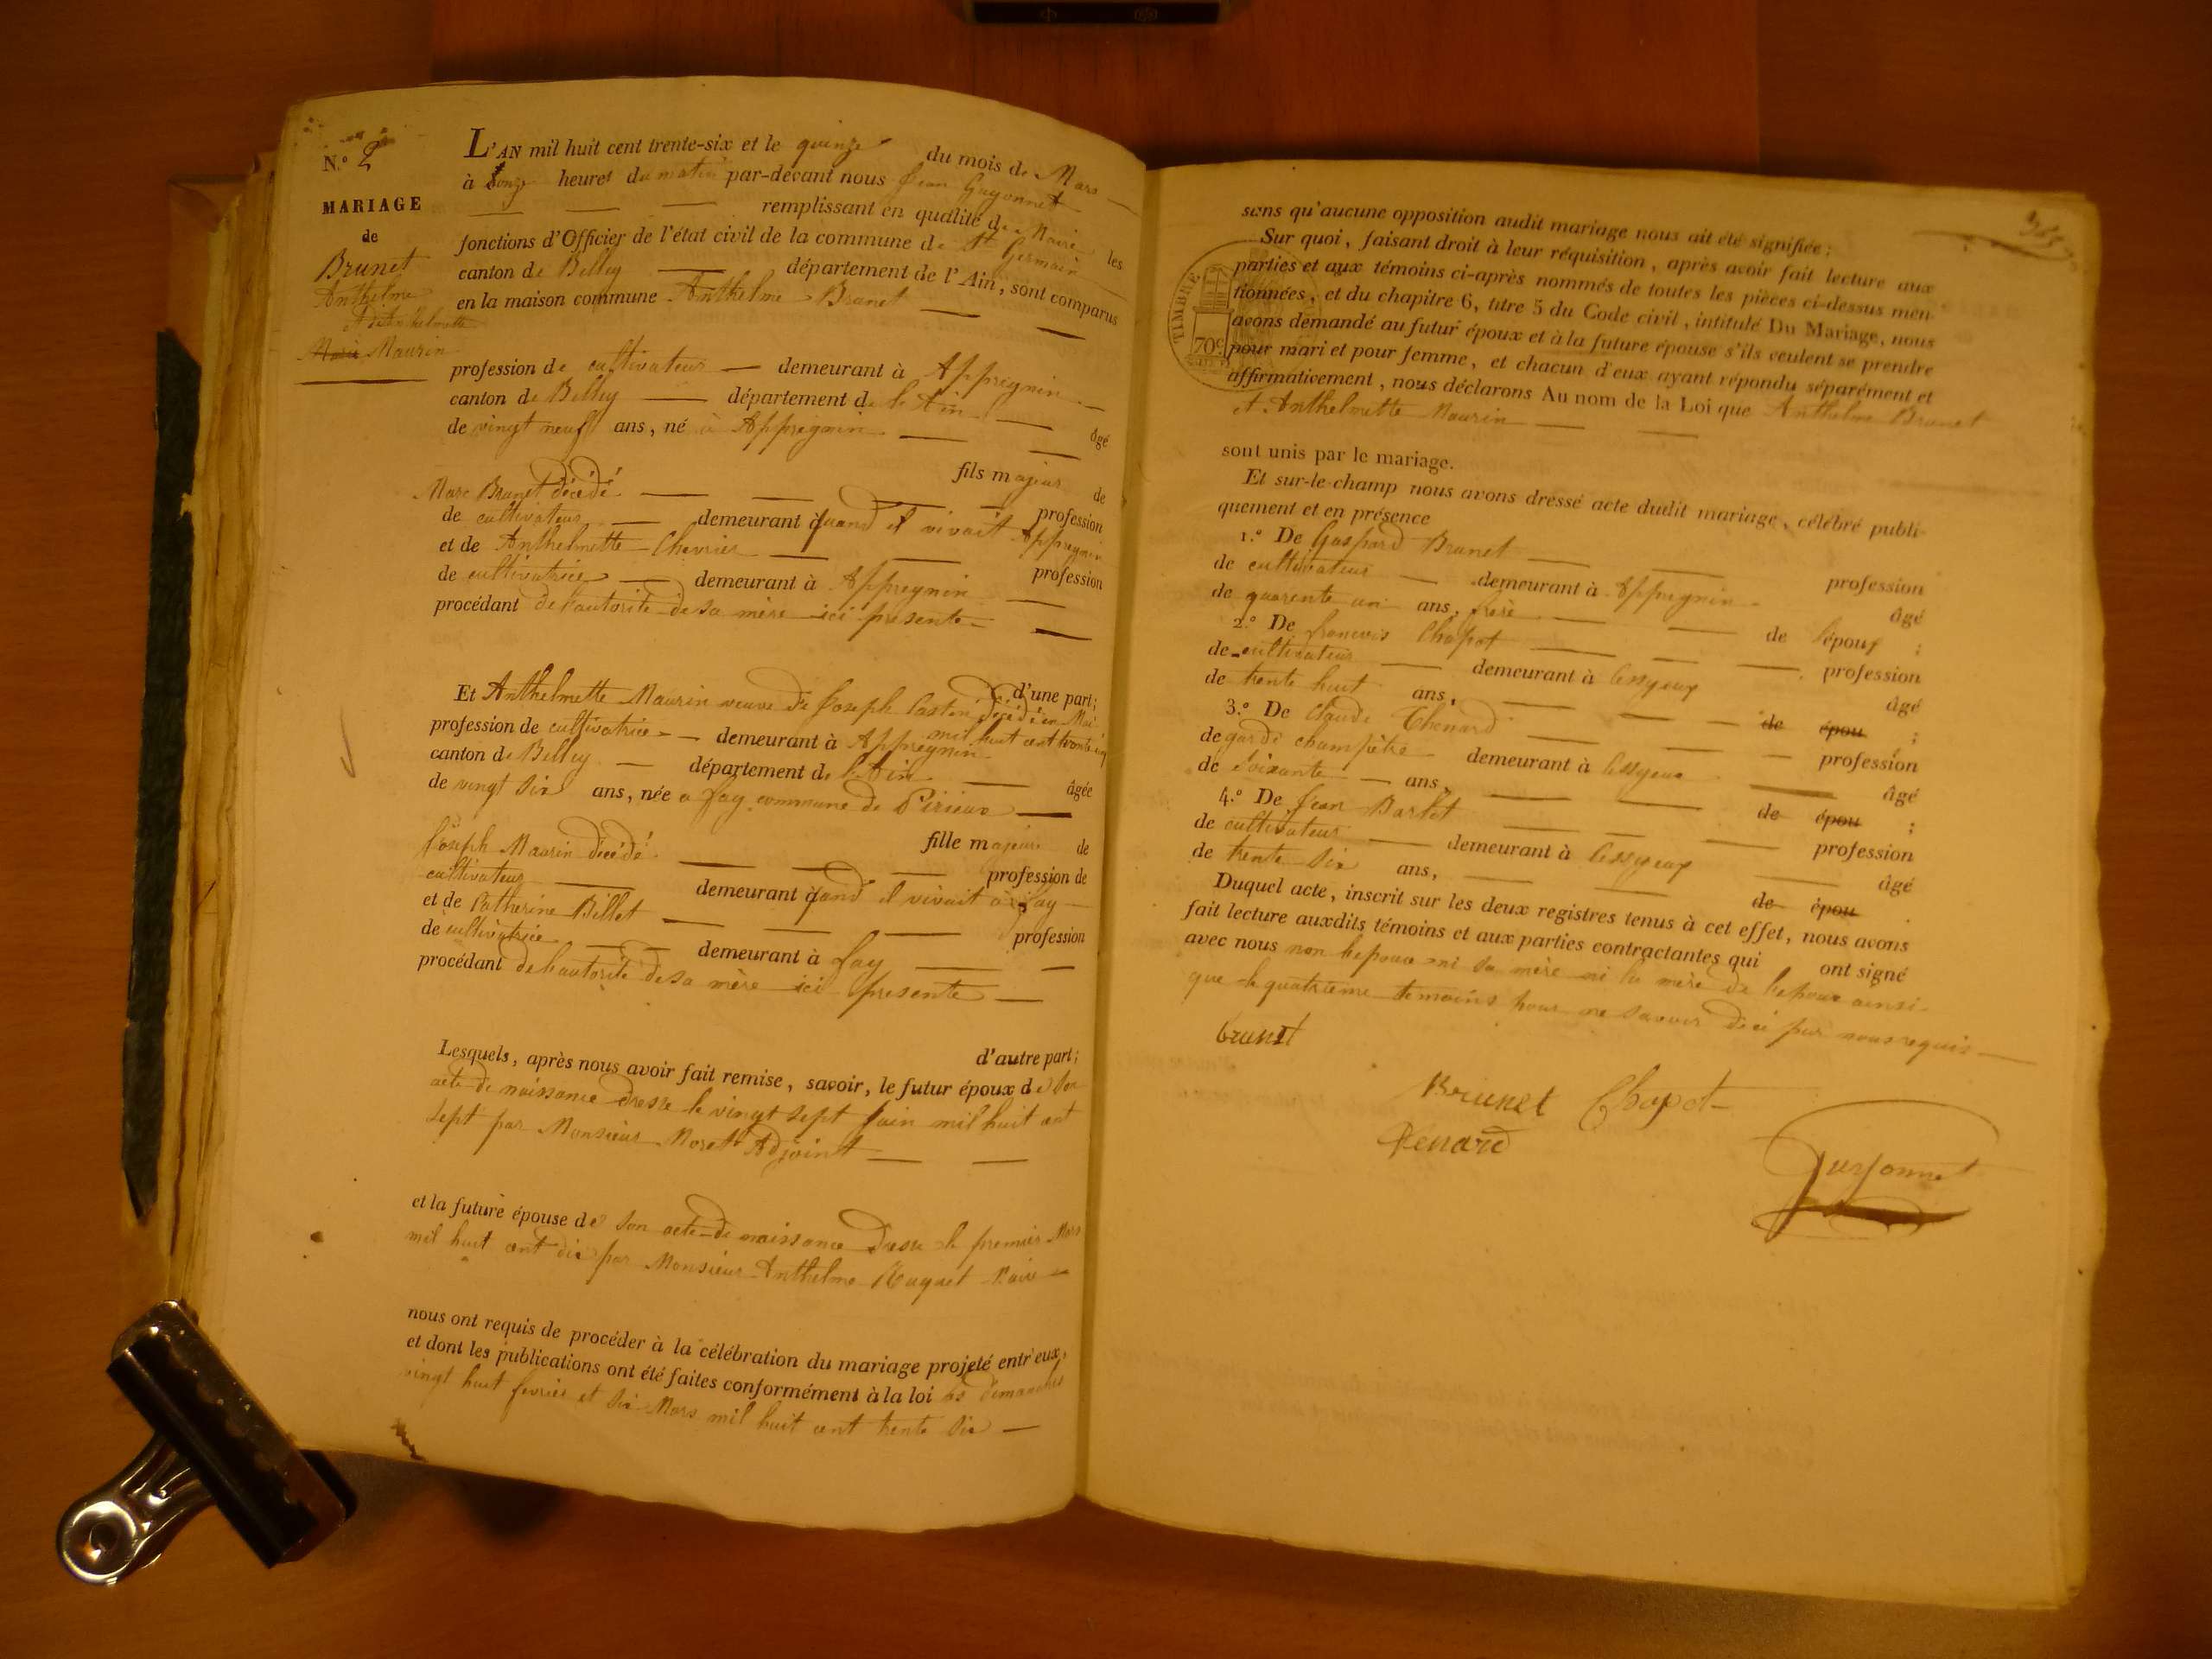 N.º 2
MARIAGE
de
Brunet
Anthelme
et Anthelmette
Marie Maurin
L'AN mil huit cent trente-six et le quinze du mois de Mars
à onze heures du matin par-devant nous Jean Guyonnet
remplissant en qualité de Maire les
fonctions d'Officier de l'état civil de la commune de St Germain
canton de Belley département de l'Ain, sont comparus
en la maison commune Anthelme Brunet
profession de cultivateur demeurant à Appregnin
canton de Belley département de l'Ain
âgé
de vingt neuf ans, né à Appregnin
fils majeur de
Marc Brunet décédé profession
de cultivateur demeurant quand il vivait Appregnin
et de Anthelmette Chevrier profession
de cultivatrice demeurant à Appregnin
procédant de l'autorité de sa mère ici présente
d'une part;
Et Anthelmette Maurin veuve de Joseph Castin décédé en Mai
mil huit cent trente
profession de cultivatrice demeurant à Appregnin
canton de Belley département de l'Ain âgée
de vingt six ans, née a Fay commune de Peirieux
fille majeure de
Joseph Maurin décédé profession de
cultivateur demeurant quand il vivait à Fay
et de Catherine Billet profession
de cultivatrice demeurant à Fay
procédant de l'autorité de sa mère ici presente
d'autre part;
Lesquels, après nous avoir fait remise, savoir, le futur époux de son
acte de naissance dressé le vingt sept juin mil huit cent
sept par Monsieur Moret Adjoint
et la future épouse de son acte de naissance dressé le premier Mars
mil huit cent dix par Monsieur Anthelme Huguet Maire
nous ont requis de procéder à la célébration du mariage projeté entr'eux,
et dont les publications ont été faites conformément à la loi les dimanches
vingt huit fevrier et six Mars mil huit cent trente six
sans qu'aucune opposition audit mariage nous ait été signifiée;
Sur quoi, faisant droit à leur réquisition, après avoir fait lecture aux
parties et aux témoins ci-après nommés de toutes les pièces ci-dessus men-
tionnées, et du chapitre 6, titre 5 du Code civil, intitulé Du Mariage, nous
avons demandé au futur époux et à la future épouse s'ils veulent se prendre
pour mari et pour femme, et chacun d'eux ayant répondu séparément et
affirmativement, nous déclarons Au nom de la Loi que Anthelme Brunet
et Anthelmette Maurin
TIMBRE
70c
sont unis par le mariage.
Et sur-le-champ nous avons dressé acte dudit mariage, célébré publi-
quement et en présence
1.º De Gaspard Brunet profession
de cultivateur demeurant à Appregnin âgé
de quarente un ans, frère de l'époux ;
2.º De francois Chapot profession
de cultivateur demeurant à Cessyeux âgé
de trente huit ans, de épou ;
3.º De Claude Thenard profession
de garde champêtre demeurant à Cessyeux âgé
de soixante ans, de épou ;
4.º De Jean Barlet profession
de cultivateur demeurant à Cessyeux âgé
de trente six ans, de épou .
Duquel acte, inscrit sur les deux registres tenus à cet effet, nous avons
fait lecture auxdits témoins et aux parties contractantes qui ont signé
avec nous non l'epouse ni sa mère ni la mère de l'epoux ainsi
que le quatrieme temoins pour ne savoir de ce par nous requis
brunet
Brunet Chapot
Tenard
Guyonnet